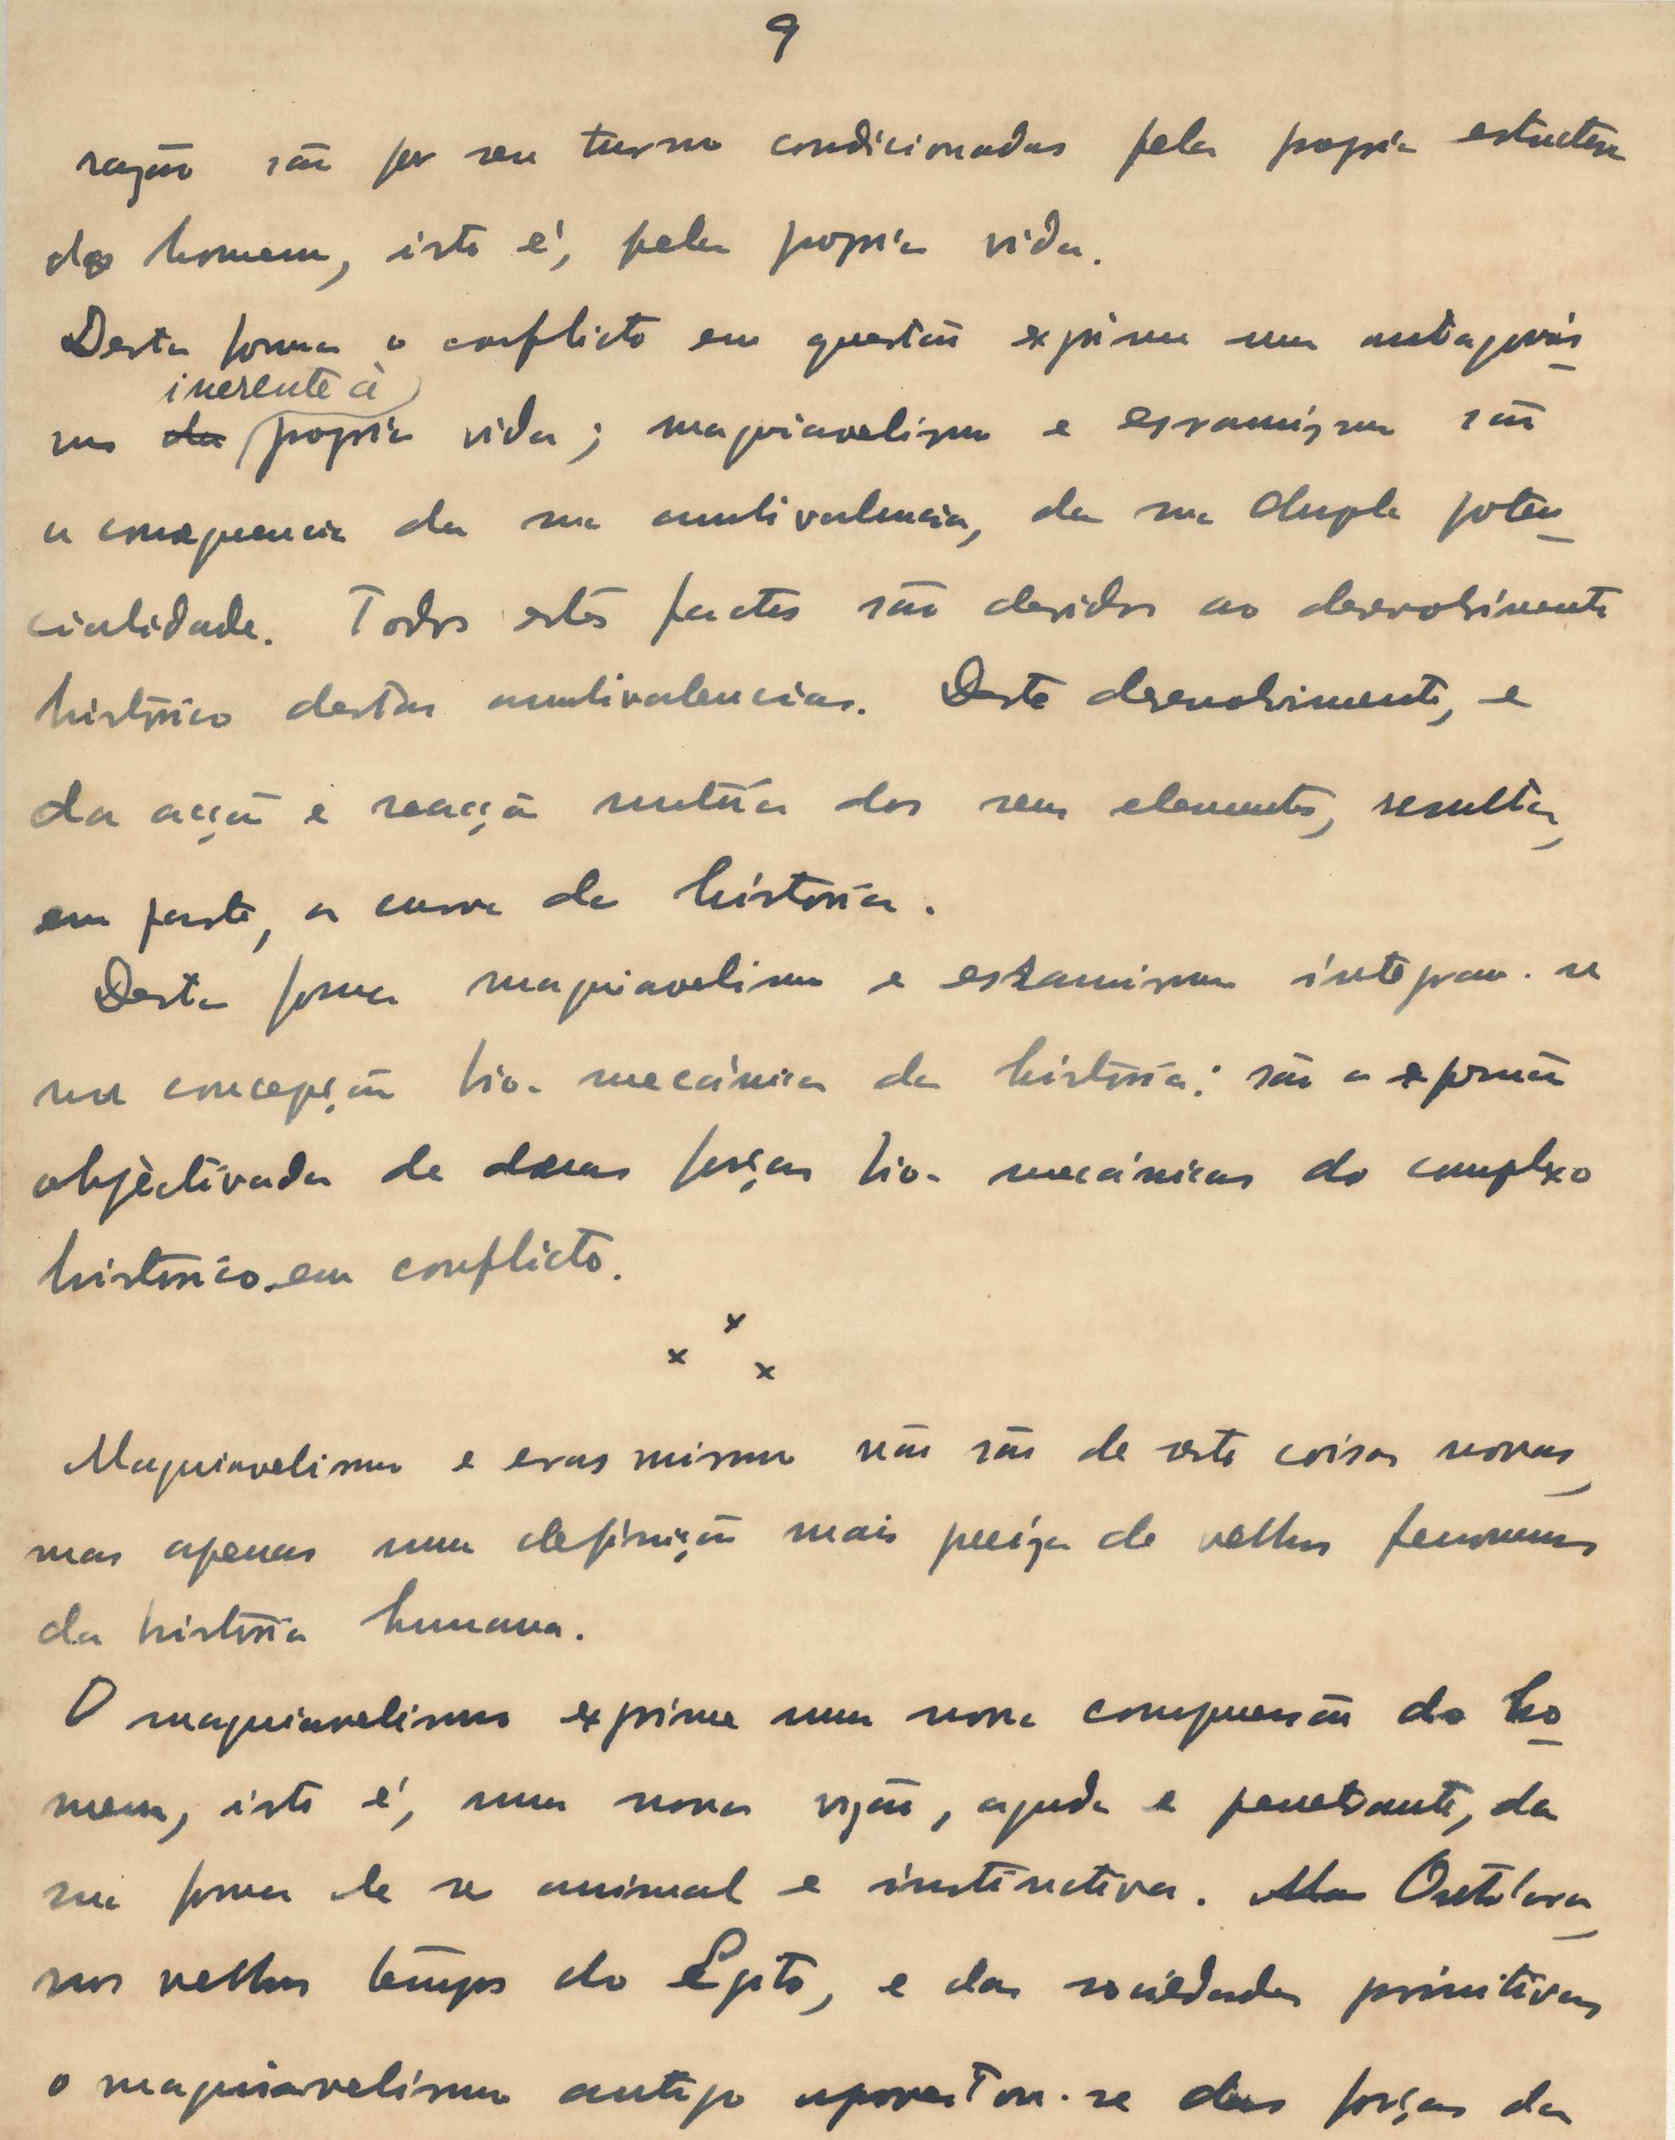 9
razão são por seu turno condicionadas pela propria estructura
do homem, isto é, pela propria vida.
Desta forma o conflicto em questão exprime um antagonis
inerente à
mo da propria vida; maquiavelismo e erasmismo são
a consequencia da sua ambivalencia, da sua dupla poten
cialidade. Todos estes factos são devidos ao desenvolvimento
histórico destas ambivalencias. Deste desenvolvimento, e
da acção e reacção mutúa dos seus elementos, resulta,
em parte, a curva da história.
Desta forma maquiavelismo e erasmismo integram-se
na concepção bio-mecánica da história: são a expressão
objèctivada de duas forças bio-mecánicas do complexo
histórico em conflicto.
x
x x
Maquiavelismo e erasmismo não são de resto coisas novas,
mas apenas uma definição mais preciza de velhos fenomenos
da história humana.
O maquiavelismo exprime uma nova compreensão do ho
mem, isto é, uma nova vizão, aguda e penetrante, da
sua forma de ser animal e instinctiva. Mas Outróra,
nos velhos tempos do Egito, e das sociedades primitivas
o maquiavelismo antigo aproveitou-se das forças da